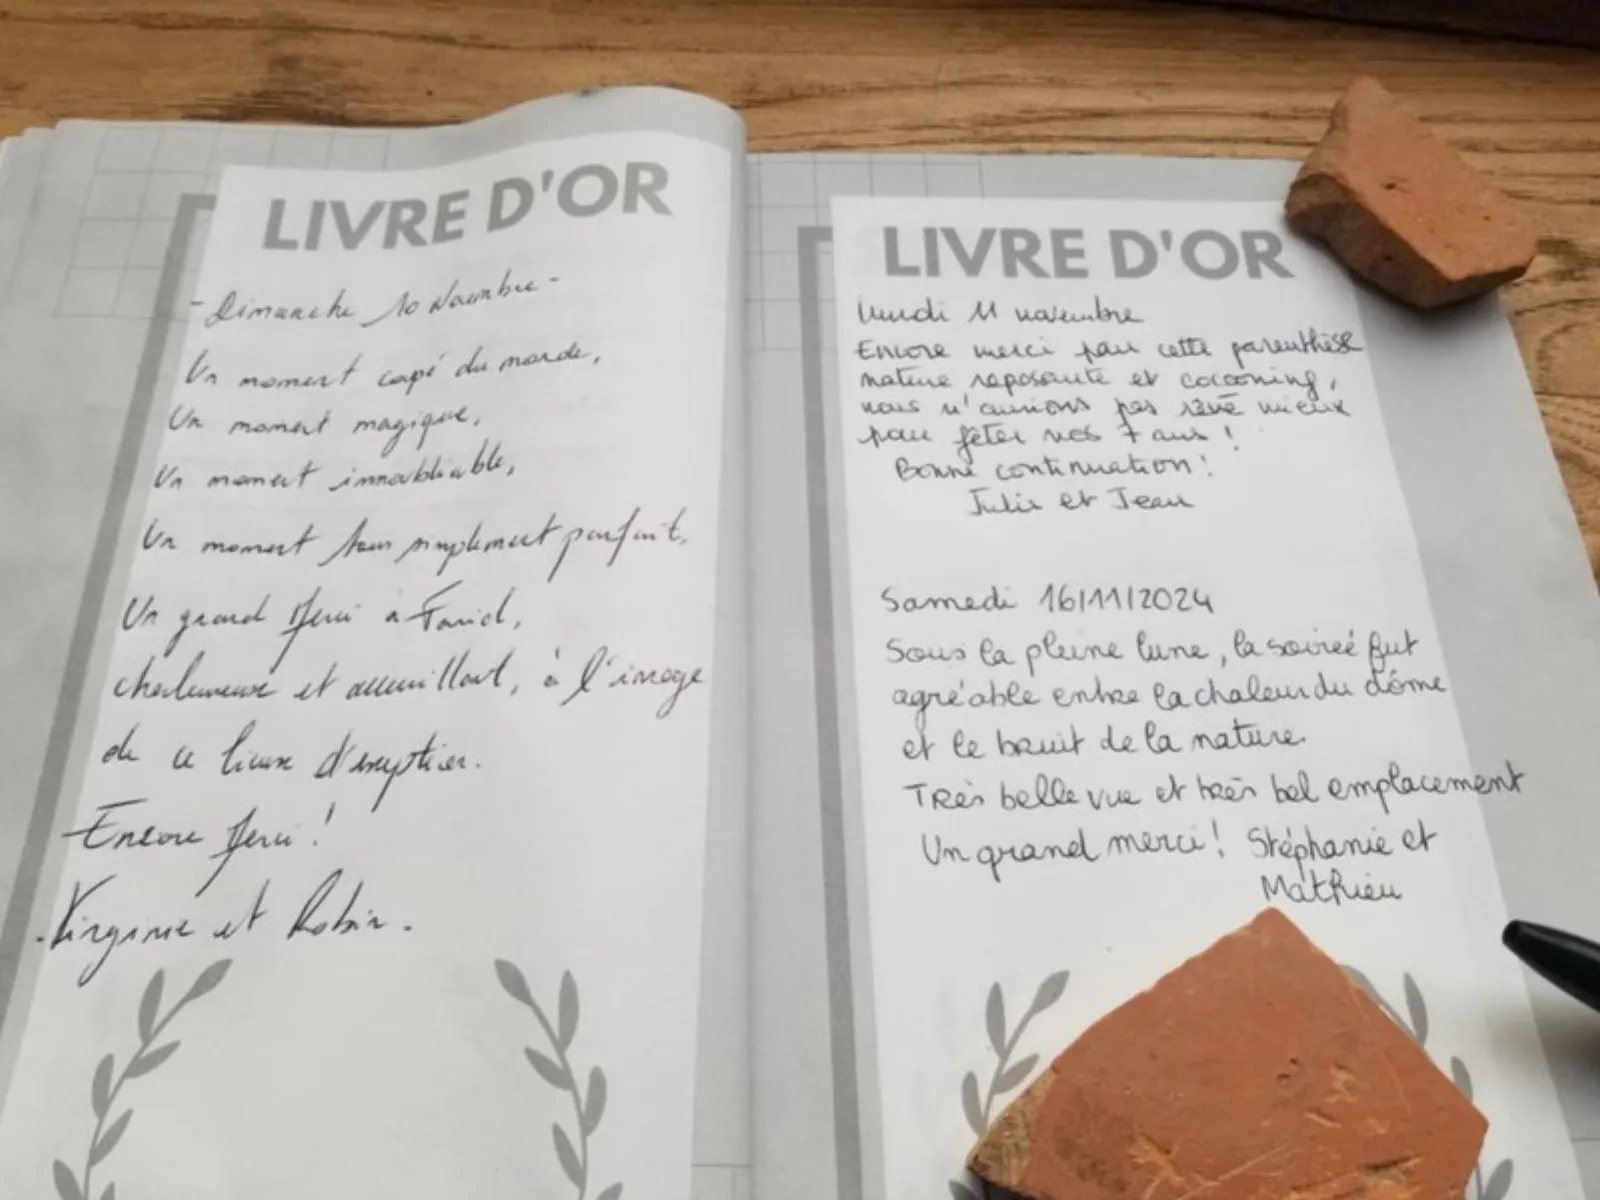 LIVRE D'OR
- Dimanche 10 Novembre -
Un moment coupé du monde,
Un moment magique,
Un moment innoubliable,
Un moment tous simplement parfait,
Un grand Merci à Farid,
chaleureuse et accueillant, à l'image
de ce lieux d'exeption.
Encore Merci !
- Virginie et Robin.
LIVRE D'OR
Lundi 11 novembre
Encore merci pour cette parenthèse
nature reposante et cocooning,
nous n'aurions pas rêvé mieux
pour fêter nos 7 ans !
Bonne continuation !
Julie et Jean
Samedi 16/11/2024
Sous la pleine lune, la soireé fut
agréable entre la chaleur du dôme
et le bruit de la nature.
Très belle vue et très bel emplacement
Un grand merci ! Stéphanie et
Mathieu